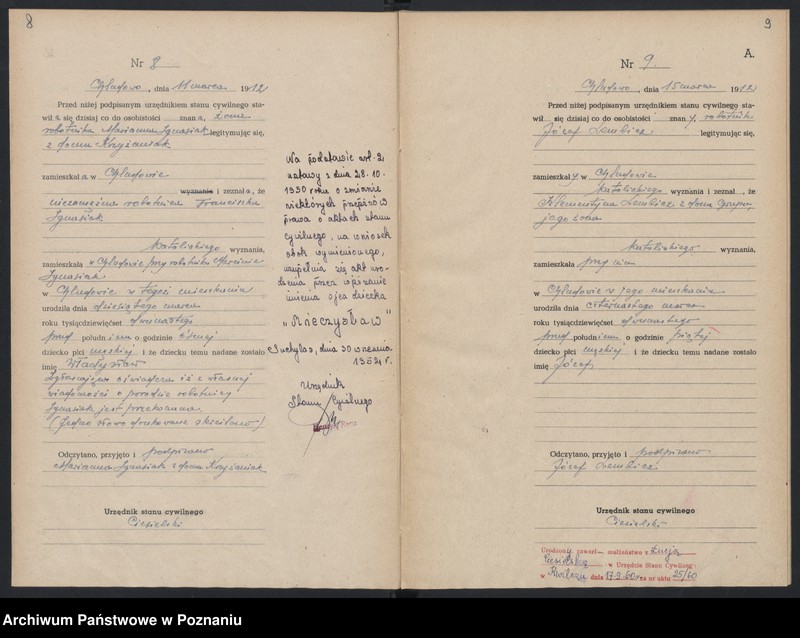 8
Nr 8
Chludowo, dnia 11 marca 1912
Przed niżej podpisanym urzędnikiem stanu cywilnego sta-
wił a się dzisiaj co do osobistości znan a, żona
robotnika Marianna Ignasiak legitymując się,
z domu Krzyżaniak
zamieszkał a w Chludowie
wyznania i zeznał a, że
niezamężna robotnica Franciszka
Ignasiak
katolickiego wyznania,
zamieszkała w Chludowie przy robotniku Marcinie
Ignasiak
w Chludowie w tegoż mieszkaniu
urodziła dnia dziesiątego marca
roku tysiącdziewięćset dwunastego
przed południem o godzinie ósmej
dziecko płci męskiej i że dziecku temu nadane zostało
imię Władysław
Zgłaszająca oświadcza iż z własnej
wiadomości o porodzie robotnicy
Ignasiak jest przekonana.
(Jedno słowo drukowane skreślono)
Odczytano, przyjęto i podpisano
Marianna Ignasiak z domu Krzyżaniak
Urzędnik stanu cywilnego
Ciesielski
Na podstawie art. 2
ustawy z dnia 28.10.
1950 roku o zmianie
niektórych przepisów
prawa o aktach stanu
cywilnego, na wniosek
obok wymienionego,
uzupełnia się akt uro-
dzenia przez wpisanie
imienia ojca dziecka
„Mieczysław"
Suchylas, dnia 30 września
195 r.
Urzędnik
Stanu Cywilnego
9
A.
Nr 9.
Chludowo, dnia 15 marca 1912
Przed niżej podpisanym urzędnikiem stanu cywilnego sta-
wił się dzisiaj co do osobistości znan y, robotnik
Józef Lembicz legitymując się,
zamieszkał y w Chludowie
katolickiego wyznania i zeznał, że
Klementyna Lembicz z domu
jego żona
katolickiego wyznania,
zamieszkała przy nim
w Chludowie w jego mieszkaniu
urodziła dnia czternastego marca
roku tysiącdziewięćset dwunastego
przed południem o godzinie piątej
dziecko płci męskiej i że dziecku temu nadane zostało
imię Józef
Odczytano, przyjęto i podpisano
Józef Lembicz
Urzędnik stanu cywilnego
Ciesielski
Urodzony zawarł małżeństwo z Łucją
w Urzędzie Stanu Cywilneg
w Kwilczu dnia 17.9.60 za nr aktu 25/60
Archiwum Państwowe w Poznaniu